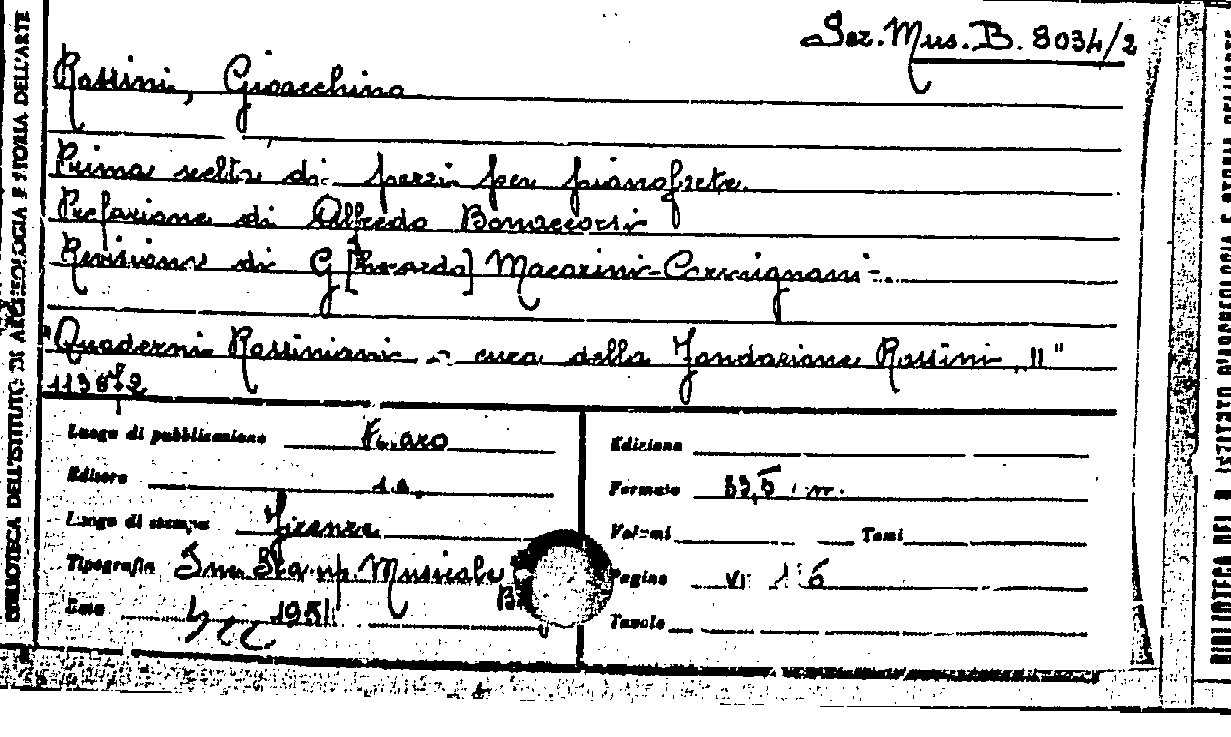 Sez. Mus. B. 8034/2
Rossini, Gioacchino
Prima scelta di pezzi per pianoforte.
Prefazione di Alfredo Bonaccorsi
Revisione di G[herardo] Macarini-Carmignani-.
"Quaderni Rossiniani a cura della Fondazione Rossini, II"
Luogo di pubblicazione Pesaro
Edizione
Editore s.n.
Formato 33,5 cm.
Luogo di stampa Firenze
Volumi Tomi
Tipografia Stamp. Musicale
Pagine VI
Data 1951
Tavole
BIBLIOTECA DELL'ISTITUTO DI ARCHEOLOGIA E STORIA DELL'ARTE